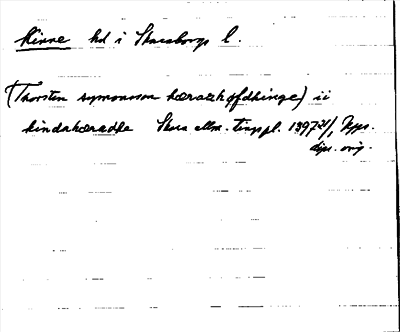 Kinne hd i Skaraborgs l.
(Thorsten symonsson hæraꝫhøfdhinge) ii
kindahæradhe Skara allm. tingspl. 1397 21/, Upps.
dipl. orig.